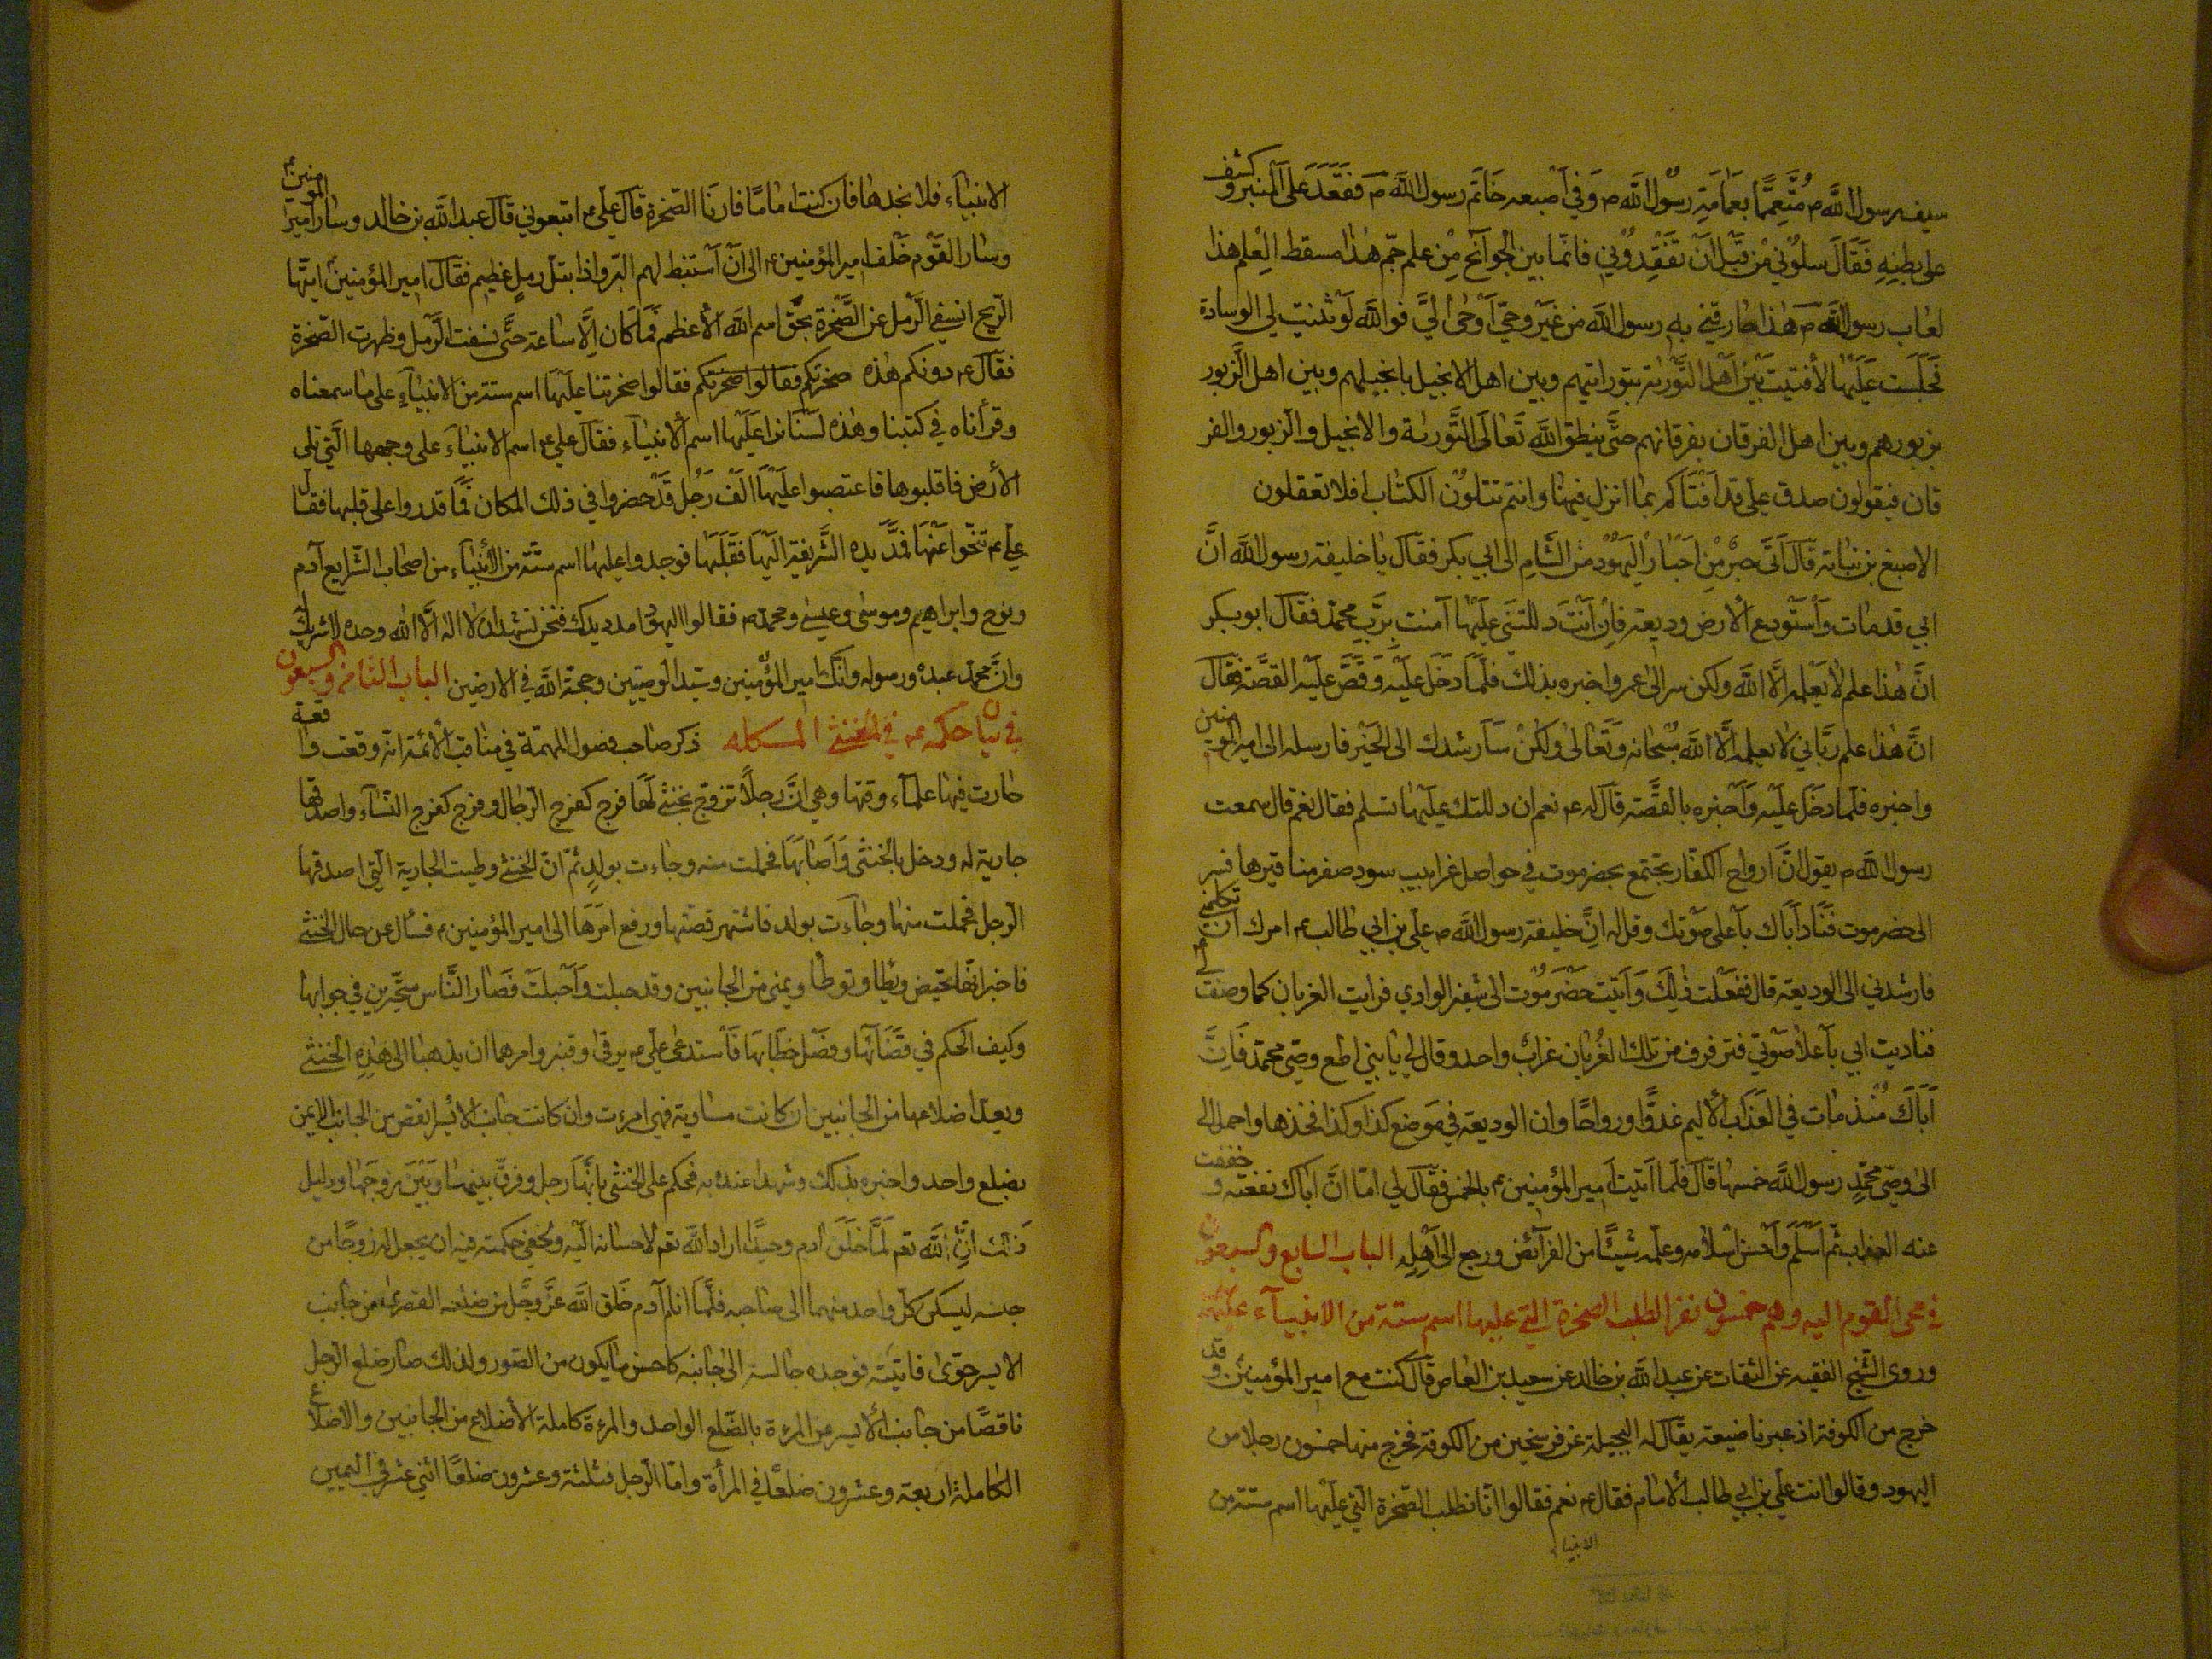 سيف رسول الله م متعمما بعمامة رسول الله م وفي اصبعه خاتم رسول الله م فقعد على المنبر وكشف
على بطنه فقال سلوني من قبل ان تفقدوني فانما بين الجوانح من علم جم هذا مسقط العلم هذا
لعاب رسول الله م هذا ما زقني به رسول الله من غير وحي اوحى الي فوالله لو ثنيت لي الوسادة
فجلست عليها لأفتيت بين اهل التورية بتوراتهم وبين اهل الانجيل بانجيلهم وبين اهل الزبور
بزبورهم وبين اهل الفرقان بفرقانهم حتى ينطق الله تعالى التورية والانجيل والزبور والفر
قان فيقولون صدق علي قد افتاكم بما انزل فيهنا وانتم تتلون الكتاب افلا تعقلون
الاصبغ بن نباته قال اتى حبر من احبار اليهود من الشام الى ابي بكر فقال يا خليفة رسول الله ان
ابي قد مات واستودع الارض وديعة فان انت دللتني عليها آمنت برب محمد فقال ابو بكر
ان هذا علم لا يعلمه الا الله ولكن سر الى عمر واخبره بذلك فلما دخل عليه وقص عليه القصة فقال
ان هذا علم رباني لا يعلمه الا الله سبحانه وتعالى ولكن سأرشدك الى الخير فارسله الى امير المؤمنين
واخبره فلما دخل عليه واخبره بالقصة قال له ع نعم ان دللتك عليها تسلم فقال نعم قال سمعت
رسول الله م يقول ان ارواح الكفار تجتمع بحضرموت في حواصل غرابيب سود صفر مناقيرها فسر
الى حضرموت فناد اباك بأعلى صوتك وقل له ان خليفة رسول الله م علي بن ابي طالب ع امرك ان تكلمني
فارشدني الى الوديعة قال ففعلت ذلك واتيت حضرموت الى شفير الوادي فرايت الغربان كما وصفت لي
فناديت ابي بأعلا صوتي فترفرف من تلك الغربان غراب واحد وقال لي يا بني اطع وصي محمد فان
اباك منذ مات في العذاب الأليم غدوا ورواحا وان الوديعة في موضع كذا وكذا فخذها واحمل الى
الى وصي محمد رسول الله خمسها قال فلما اتيت امير المؤمنين ع بالخمس فقال لي اما ان اباك نفعته وخففت
عنه العذاب ثم اسلم واحسن اسلامه وعلمه شيئا من الفرائض ورجع الى اهله الباب السابع والسبعون
في مجى القوم اليه وهم خمسون نفر الطلب الصخرة التي عليها اسم ستة من الانبياء عليهم
وروى الشيخ الفقيه عن الثقات عن عبد الله بن خالد عن سعيد بن العاص قال كنت مع امير المؤمنين وقد
خرج من الكوفة اذ عبر نا ضيعة يقال له البجيلة عن فرسخين من الكوفة فخرج منها خمسون رجلا من
اليهود وقالوا انت علي بن ابي طالب الامام فقال ع نعم فقالوا انا نطلب الصخرة التي عليها اسم ستة من
الانبياء
الانبياء فلا نجدها فان كنت اماما فارنا الصخرة قال علي ع اتبعوني قال عبد الله بن خالد وسار امير المؤمنين
وسار القوم خلف امير المؤمنين ع الى ان استنبط لهم البر واذا بتل رمل عظيم فقال امير المؤمنين ايتها
الريح انسفي الرمل عن الصخرة بحق اسم الله الأعظم فما كان الا ساعة حتى نسفت الرمل وظهرت الصخرة
فقال ع دونكم هذه صخرتكم فقالوا صخرتكم فقالوا صخرتنا عليها اسم ستة من الانبياء على ما سمعناه
وقرأناه في كتبنا وهذه لسنا نرا عليها اسم الانبياء فقال علي ع اسم الانبياء على وجهها التي تلى
الأرض فاقلبوها فاعتصبوا عليها الف رجل قد حضروا في ذلك المكان فما قدروا على قلبها فقال
علي ع تنحوا عنها فمد يده الشريفة اليها فقلبها فوجدوا عليها اسم ستة من الأنبياء من اصحاب الشرايع آدم
ونوح وابراهيم وموسى وعيسى ومحمد م فقالوا اليهود امدد يدك فنحن نشهد ان لا اله الا الله وحده لا شريك
وان محمد عبده ورسوله وانك امير المؤمنين وسيد الوصيين وحجة الله في الارضين الباب الثامن والسبعون
في بيان حكمه ع في الخنثى المشكله ذكر صاحب فصول المهمة في مناقب الأئمة انه وقعت واقعة
حارت فيها علماء وقتها وهي ان رجلا تزوج بخنثى لها فرج كفرج الرجال وفرج كفرج النساء واصدقها
جارية له ودخل بالخنثى واصابها فحملت منه وجاءت بولد ثم ان الخنثى وطيت الجارية التي اصدقها
الرجل فحملت منها وجاءت بولد فاشتهر قصتها ورفع امرها الى امير المؤمنين ع فسأل عن حال الخنثى
فاخبر انها تحيض وتطا وتوطا ويمنى من الجانبين وقد حبلت واحبلت فصار الناس متحيرين في جوابها
وكيف الحكم في قضائها وفصل خطابها فاستدعى علي ع يرقى وقنبر وامرهما ان يذهبا الى هذه الخنثى
ويعدا ضلاعها من الجانبين ان كانت مساوية فهي امرءت وان كانت جانب الايسر انقص من الجانب الايمن
بضلع واحد واخبره بذلك وشهدا عنده به فحكم على الخنثى بانها رجل وفرق بينها وبين زوجها ودليل
ذلك ان الله تعم لما خلق ادم وحيدا اراد الله تعم لاحسانه اليه ومخفي حكمته فيه ان يجعل له زوجا من
جنسه ليسكن كل واحد منهما الى صاحبه فلما انام آدم خلق الله عز وجل من ضلعه القصرى من جانب
الايسر حوى فانتبه فوجده جالسة الى جانبه كاحسن ما يكون من الصور ولذلك صار ضلع الرجل
ناقصا من جانب الأيسر من المرءة بالضلع الواحد والمرءة كاملة الأضلاع من الجانبين والاضلاع
الكاملة اربعة وعشرون ضلعا في المرأة واما الرجل فثلثة وعشرون ضلعا اثني عشر في اليمين